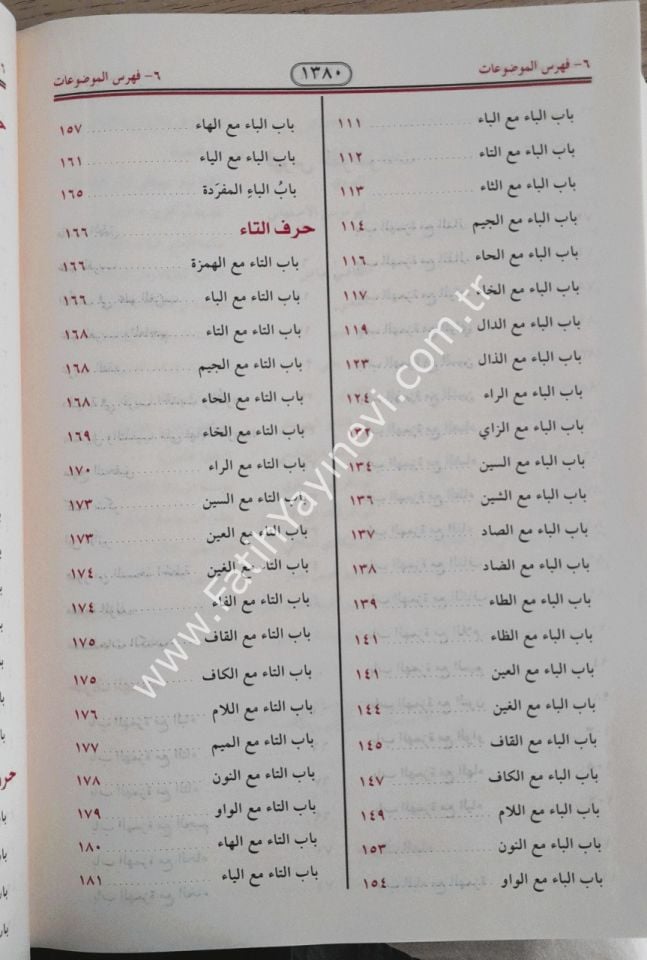 ٦- فهرس الموضوعات
١٣٨٠
٦- فهرس الموضوعات
باب الباء مع الباء ١١١
باب الباء مع التاء ١١٢
باب الباء مع الثاء ١١٣
باب الباء مع الجيم ١١٤
باب الباء مع الحاء ١١٦
باب الباء مع الخاء ١١٧
باب الباء مع الدال ١١٩
باب الباء مع الذال ١٢٣
باب الباء مع الراء ١٢٤
باب الباء مع الزاي ١٣٢
باب الباء مع السين ١٣٤
باب الباء مع الشين ١٣٦
باب الباء مع الصاد ١٣٧
باب الباء مع الضاد ١٣٨
باب الباء مع الطاء ١٣٩
باب الباء مع الظاء ١٤١
باب الباء مع العين ١٤١
باب الباء مع الغين ١٤٤
باب الباء مع القاف ١٤٥
باب الباء مع الكاف ١٤٧
باب الباء مع اللام ١٤٩
باب الباء مع النون ١٥٣
باب الباء مع الواو ١٥٤
باب الباء مع الهاء ١٥٧
باب الباء مع الياء ١٦١
بابُ الباءِ المفرَدة ١٦٥
حرف التاء ١٦٦
باب التاء مع الهمزة ١٦٦
باب التاء مع الباء ١٦٦
باب التاء مع التاء ١٦٨
باب التاء مع الجيم ١٦٨
باب التاء مع الحاء ١٦٨
باب التاء مع الخاء ١٦٩
باب التاء مع الراء ١٧٠
باب التاء مع السين ١٧٣
باب التاء مع العين ١٧٣
باب التاء مع الغين ١٧٤
باب التاء مع الفاء ١٧٤
باب التاء مع القاف ١٧٥
باب التاء مع الكاف ١٧٥
باب التاء مع اللام ١٧٦
باب التاء مع الميم ١٧٧
باب التاء مع النون ١٧٨
باب التاء مع الواو ١٧٩
باب التاء مع الهاء ١٨٠
باب التاء مع الياء ١٨١
www.FatihYayinevi.com.tr